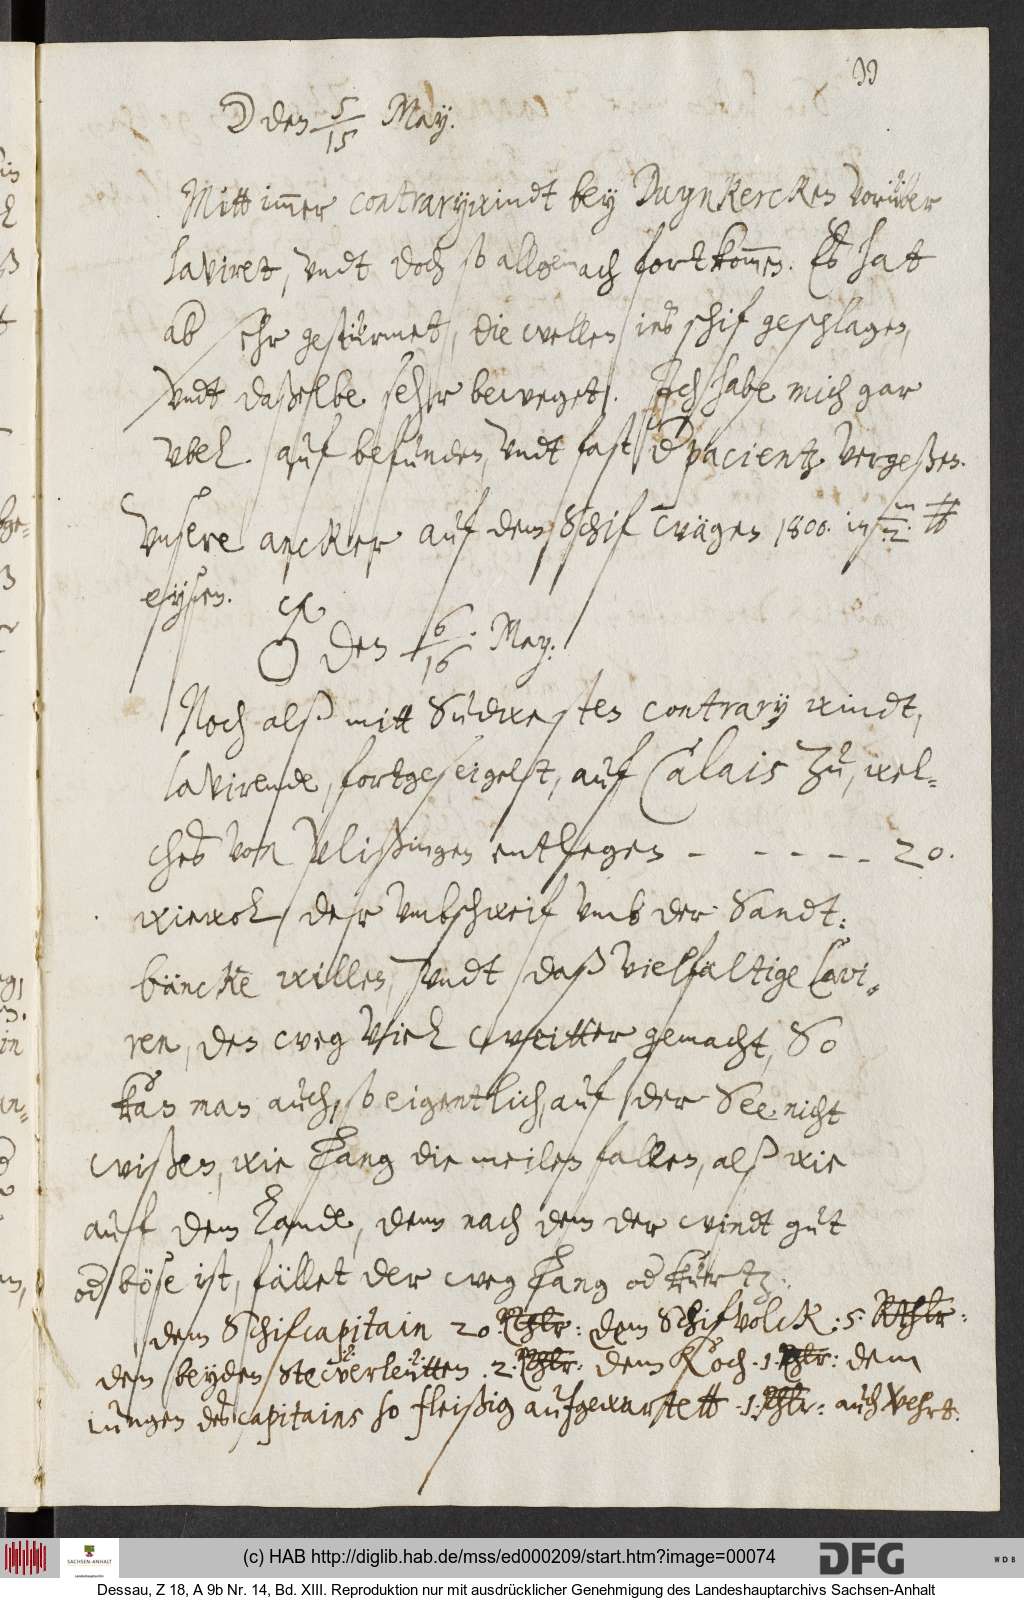 ☽ den 5/15 May.
Mitt immer contrarywindt bey Duynkercken vorüber
laviret, undt doch so allgemach fortkommen. Es hat
ab sehr gestürmet, die wellen ins schif geschlagen,
undt daßelbe sehr beweget. Ich habe mich gar
vbel auf befunden, undt fast d pacientz vergeßen.
Vnsere ancker auf dem Schif wägen 1800. in m/2. ℔
eysen.
♂ den 6/16. May.
Noch alß mitt Südwesten contrary windt,
lavirende, fortgeseigelt, auf Calais zu, wel-
ches von Vlißingen entlegen - - - - - 20.
wiewol der umbschweif umb der Sandt:
bäncke willen, undt daß vielfältige lavi-
ren, den weg viel weitter gemacht, So
kan man auch, so eigentlich, auf der See nicht
wißen, wie lang die meilen fallen, alß wie
auf dem lande, denn nach dem der windt gut
od böse ist, fället der weg lang od kurtz.
dem Schifcapitain 20 Rthlr: dem Schifvolck: 5. Rthlr:
den beyden Stewerleütten .2. Rthlr: dem Koch .1. Rthlr: dem
iungen des capitains so fleißig aufgewartett .1. Rthlr: auch verehrt.
(c) HAB http://diglib.hab.de/mss/ed000209/start.htm?image=00074
SACHSEN-ANHALT
DFG
WDB
Dessau, Z 18, A 9b Nr. 14, Bd. XIII. Reproduktion nur mit ausdrücklicher Genehmigung des Landeshauptarchivs Sachsen-Anhalt